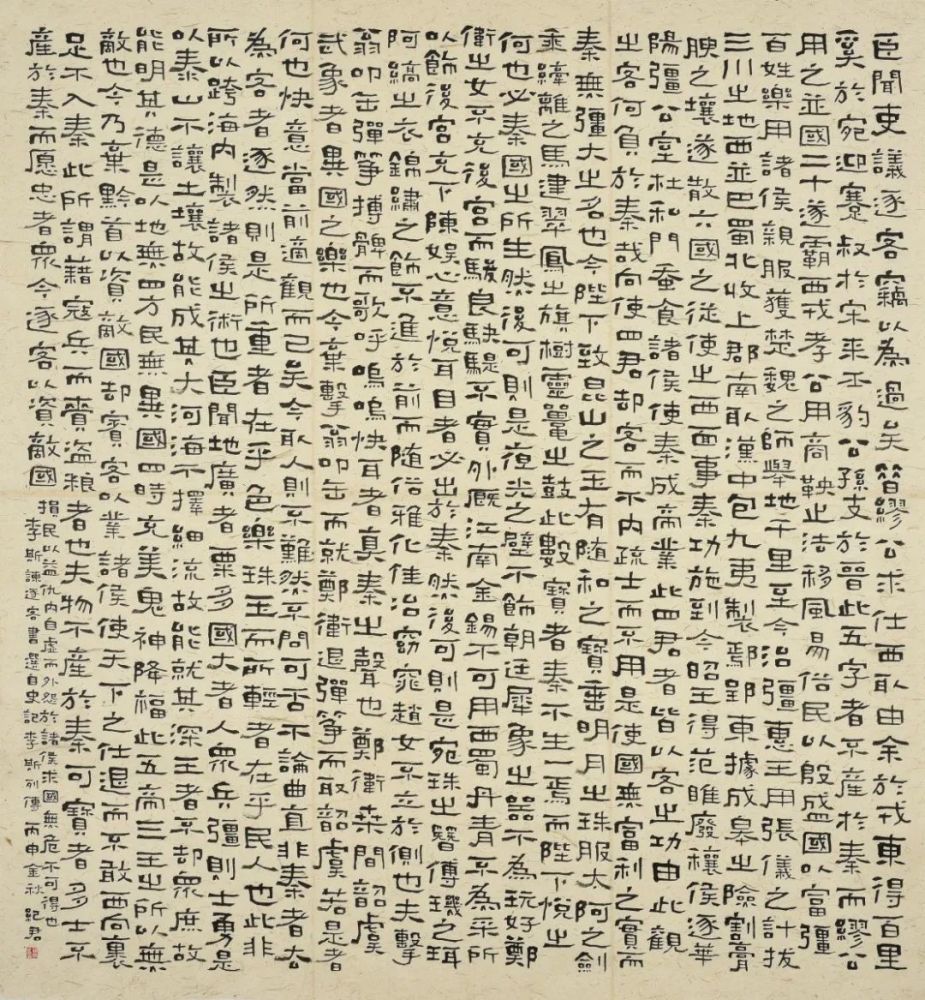 臣聞吏議逐客竊以為過矣昔繆公求仕西取由余於戎東得百里
奚於宛迎蹇叔於宋來丕豹公孫支於晉此五字者不產於秦而繆公
用之並國二十遂霸西戎孝公用商鞅之法移風易俗民以殷盛國以富彊
百姓樂用諸侯親服獲楚魏之師舉地千里至今治彊惠王用張儀之計拔
三川之地西並巴蜀北收上郡南取漢中包九夷製鄢郢東據成皋之險割膏
腴之壤遂散六國之從使之西面事秦功施到今昭王得范睢廢穰侯逐華
陽彊公室杜私門蠶食諸侯使秦成帝業此四君者皆以客之功由此觀
之客何負於秦哉向使四君却客而不內疏士而不用是使國無富利之實而
秦無彊大之名也今陛下致昆山之玉有隨和之寶垂明月之珠服太阿之劍
乘纖離之馬建翠鳳之旗樹靈鼉之鼓此數寶者秦不生一焉而陛下悅之
何也必秦國之所生然後可則是夜光之璧不飾朝廷犀象之器不為玩好鄭
衛之女不充後宮而駿良駃騠不實外廄江南金錫不可用西蜀丹青不為采所
以飾後宮充下陳娛心意悅耳目者必出於秦然後可則是宛珠之簪傅璣之珥
阿縞之衣錦繡之飾不進於前而隨俗雅化佳冶窈窕趙女不立於側也夫擊
翁叩缶彈箏搏髀而歌呼嗚嗚快耳者真秦之聲也鄭衛桑間韶虞
武象者異國之樂也今棄擊翁叩缶而就鄭衛退彈箏而取韶虞若是者
何也快意當前適觀而已矣今取人則不難然不問可否不論曲直非秦者去
為客者逐然則是所重者在乎色樂珠玉而所輕者在乎民人也此非
所以跨海內製諸侯之術也臣聞地廣者粟多國大者人眾兵彊則士勇是
以泰山不讓土壤故能成其大河海不擇細流故能就其深王者不却眾庶故
能明其德是以地無四方民無異國四時充美鬼神降福此五帝三王之所以無
敵也今乃棄黔首以資敵國却賓客以業諸侯使天下之仕退而不敢西向裹
足不入秦此所謂藉寇兵而齎盜糧者也夫物不產於秦可寶者多士不
產於秦而愿忠者眾今逐客以資敵國
損民以益仇內自虛而外怨於諸侯求國無危不可得也
李斯諫逐客書選自史記李斯列傳 丙申金秋 紀君